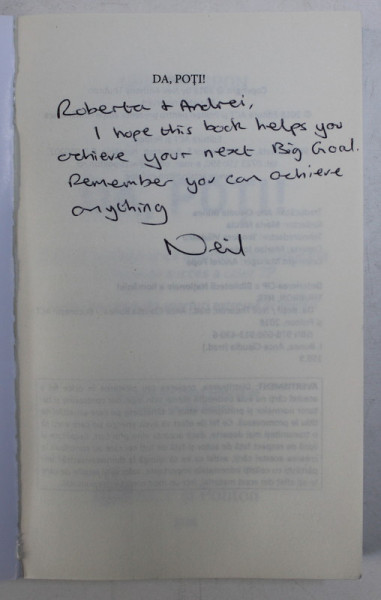 DA, POȚI!
Roberta & Andrei,
I hope this book helps you
achieve your next Big Goal.
Remember you can achieve
anything
Neil